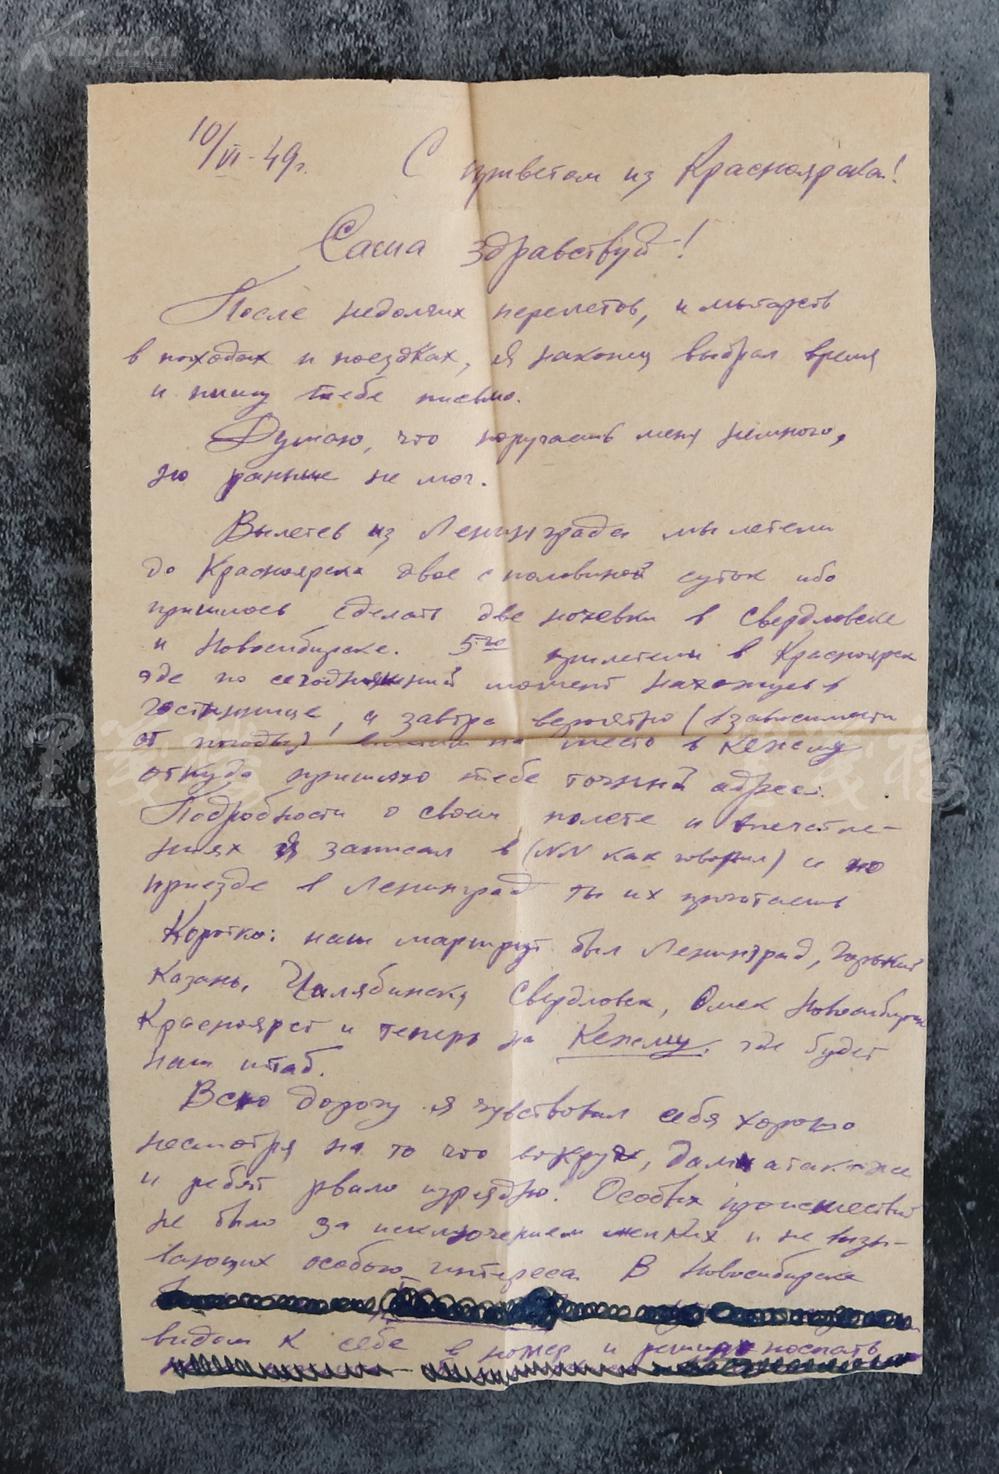 10/VI-49г. С приветом из Красноярска!
Саша здравствуй!
После недолгих перелетов, и мытарств
в походах и поездках, я наконец выбрал время
и пишу тебе письмо.
Думаю, что поругаешь меня немного,
но раньше не мог.
Вылетев из Ленинграда мы летели
до Красноярска двое с половиной суток ибо
пришлось сделать две ночевки в Свердловске
и Новосибирске. 5го прилетели в Красноярск
где по сегодняшний момент нахожусь в
гостинице, а завтра вероятно (в зависимости
от погоды) на место в Кежму
откуда пришлю тебе точный адрес.
Подробности о своем полете и впечатле-
ниях я записал в (NN как говорил) и по
приезде в Ленинград ты их прочтаешь
Коротко: наш маршрут был Ленинград, Горький
Казань, Челябинск, Свердловск, Омск Новосибирск
Красноярст и теперь на Кежму. где будет
наш штаб.
Всю дорогу я чувствовал себя хорошо
несмотря на то что вокруг, дам а также
и ребят рвало изрядно. Особых происшествий
не было за исключением мелких и не вызы-
вающих особого интереса. В Новосибирске
видом к себе в номер и решив поспать